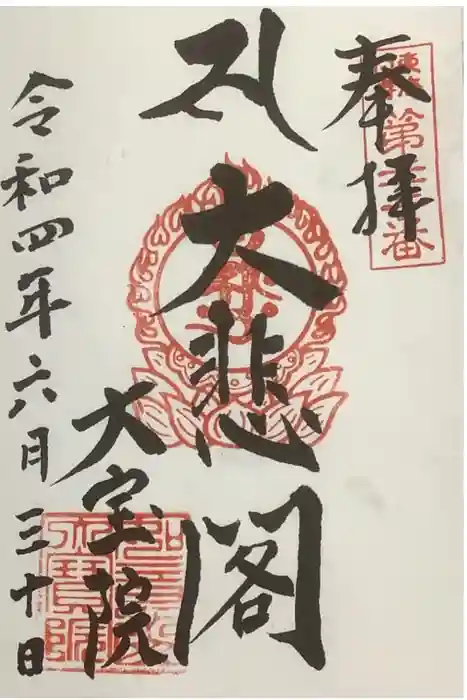 奉拝
大悲閣
大宝院
令和四年六月三十日